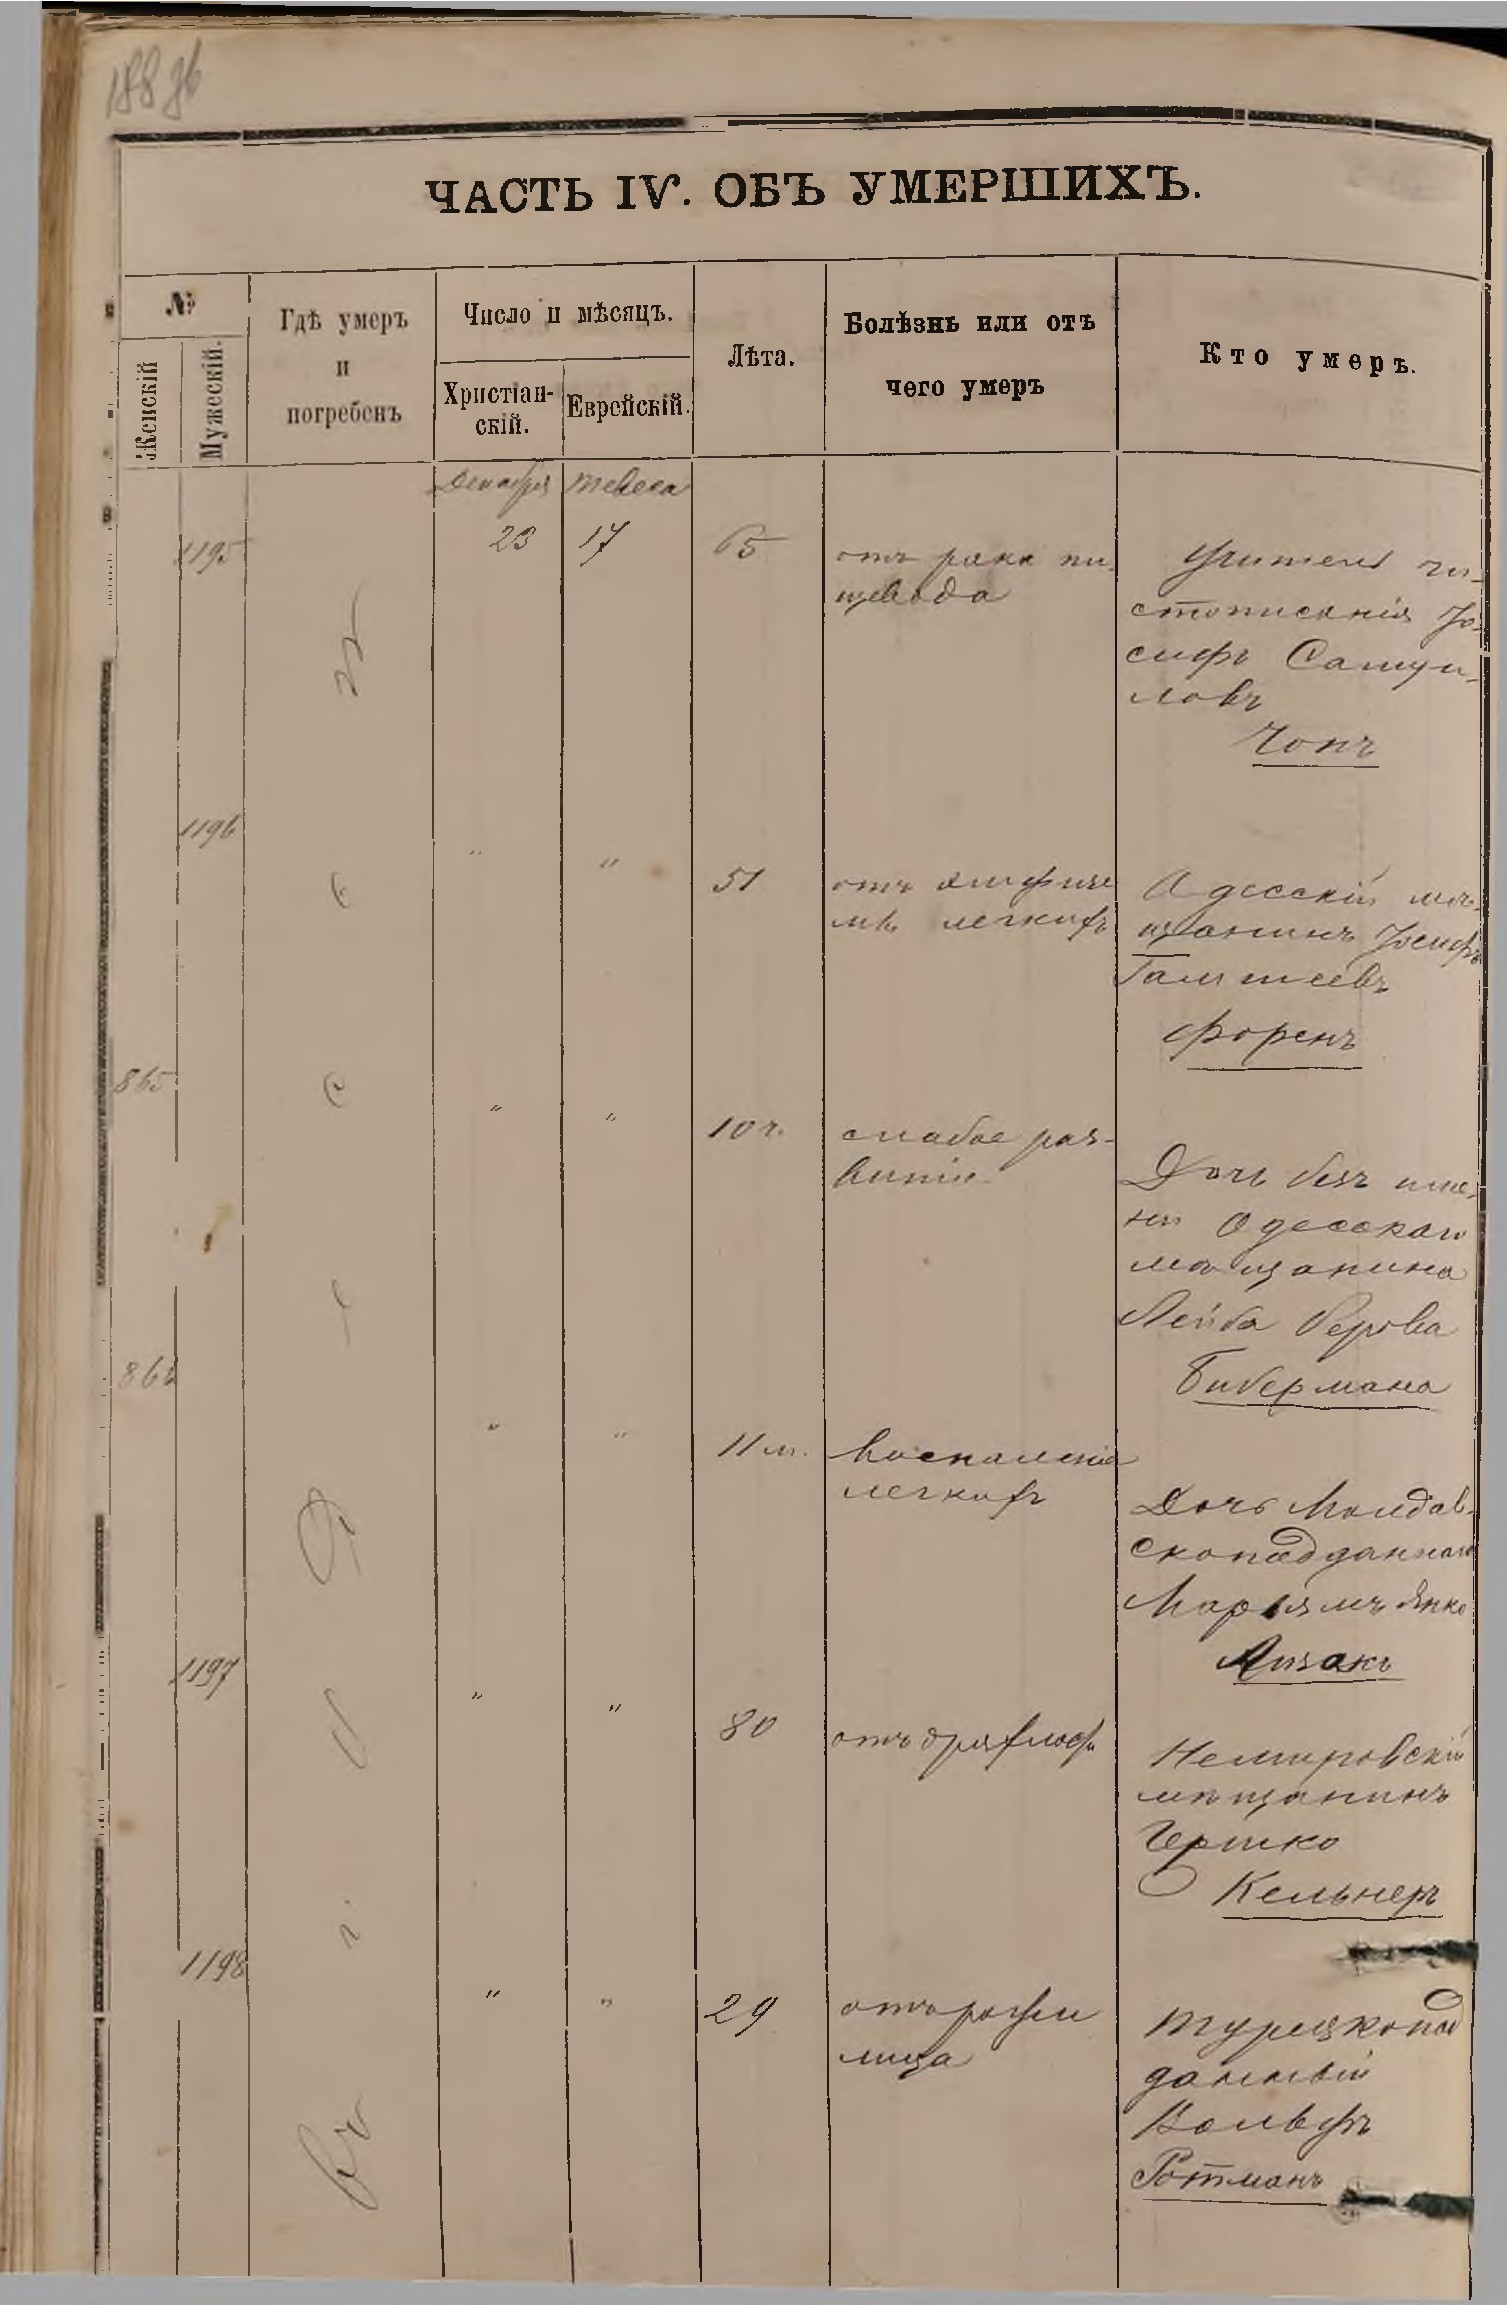 188 об
ЧАСТЬ IV. ОБЪ УМЕРШИХЪ.
№
Женскій
Мужескій.
Гдѣ умеръ
и
погребенъ
Число и мѣсяцъ.
Христіан-
скій.
Еврейскій.
Лѣта.
Болѣзнь или отъ
чего умеръ
Кто умеръ.
Декабря Тевеса
1195
23 17 65
отъ рака пи-
щевода
Учитель чи-
стописанія Іо-
сифъ Самуи-
ловъ
Чопъ
1196
" " 51
отъ эмфизе
мы легкихъ
Одесскій мѣ-
щанинъ Іосифъ
Форенъ
865
" " 10 ч.
слабое раз-
витіе
Дочь безъ име-
ни Одесскаго
мѣщанина
Лейба Берова
Бибермана
866
" " 11 м.
Воспаленіе
легкихъ
Дочь Молдав-
скоподданнаго
Марьямъ Янко
Айзакъ
1197
" " 80
отъ дряхлос.
Немировскій
мѣщанинъ
Гершко
Кельнеръ
1198
" " 29
отъ рожи
лица
Турецкопод
данный
Вольфъ
Ротманъ
въ Одессѣ